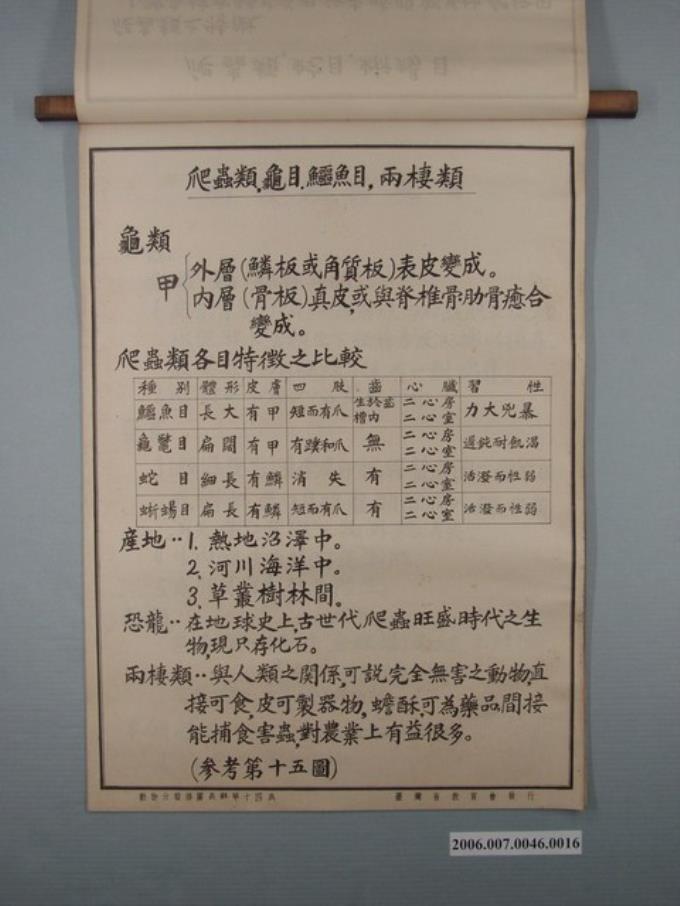 爬蟲類,龜目.鱷魚目,兩棲類
龜類
甲
外層(鱗板或角質板)表皮變成。
内層(骨板)真皮,或與脊椎骨肋骨癒合
變成。
爬蟲類各目特徵之比較
種別 體形 皮膚 四肢 齒 心臟 習性
鱷魚目 長大 有甲 短而有爪 生於齒槽内 二心房二心室 力大兇暴
龜鼈目 扁闊 有甲 有蹼和爪 無 二心房二心室 遲鈍耐飢渴
蛇目 細長 有鱗 消失 有 二心房二心室 活潑而性弱
蜥蜴目 扁長 有鱗 短而有爪 有 二心房二心室 活潑而性弱
産地··1. 熱地沼澤中。
2. 河川海洋中。
3. 草叢樹林間。
恐龍··在地球史上,古世代爬蟲旺盛時代之生
物,現只存化石。
兩棲類··與人類之關係,可説完全無害之動物,直
接可食,皮可製器物,蟾酥,可為藥品,間接
能捕食害蟲,對農業上有益很多。
(參考第十五圖)
臺灣省教育會發行
2006.007.0046.0016